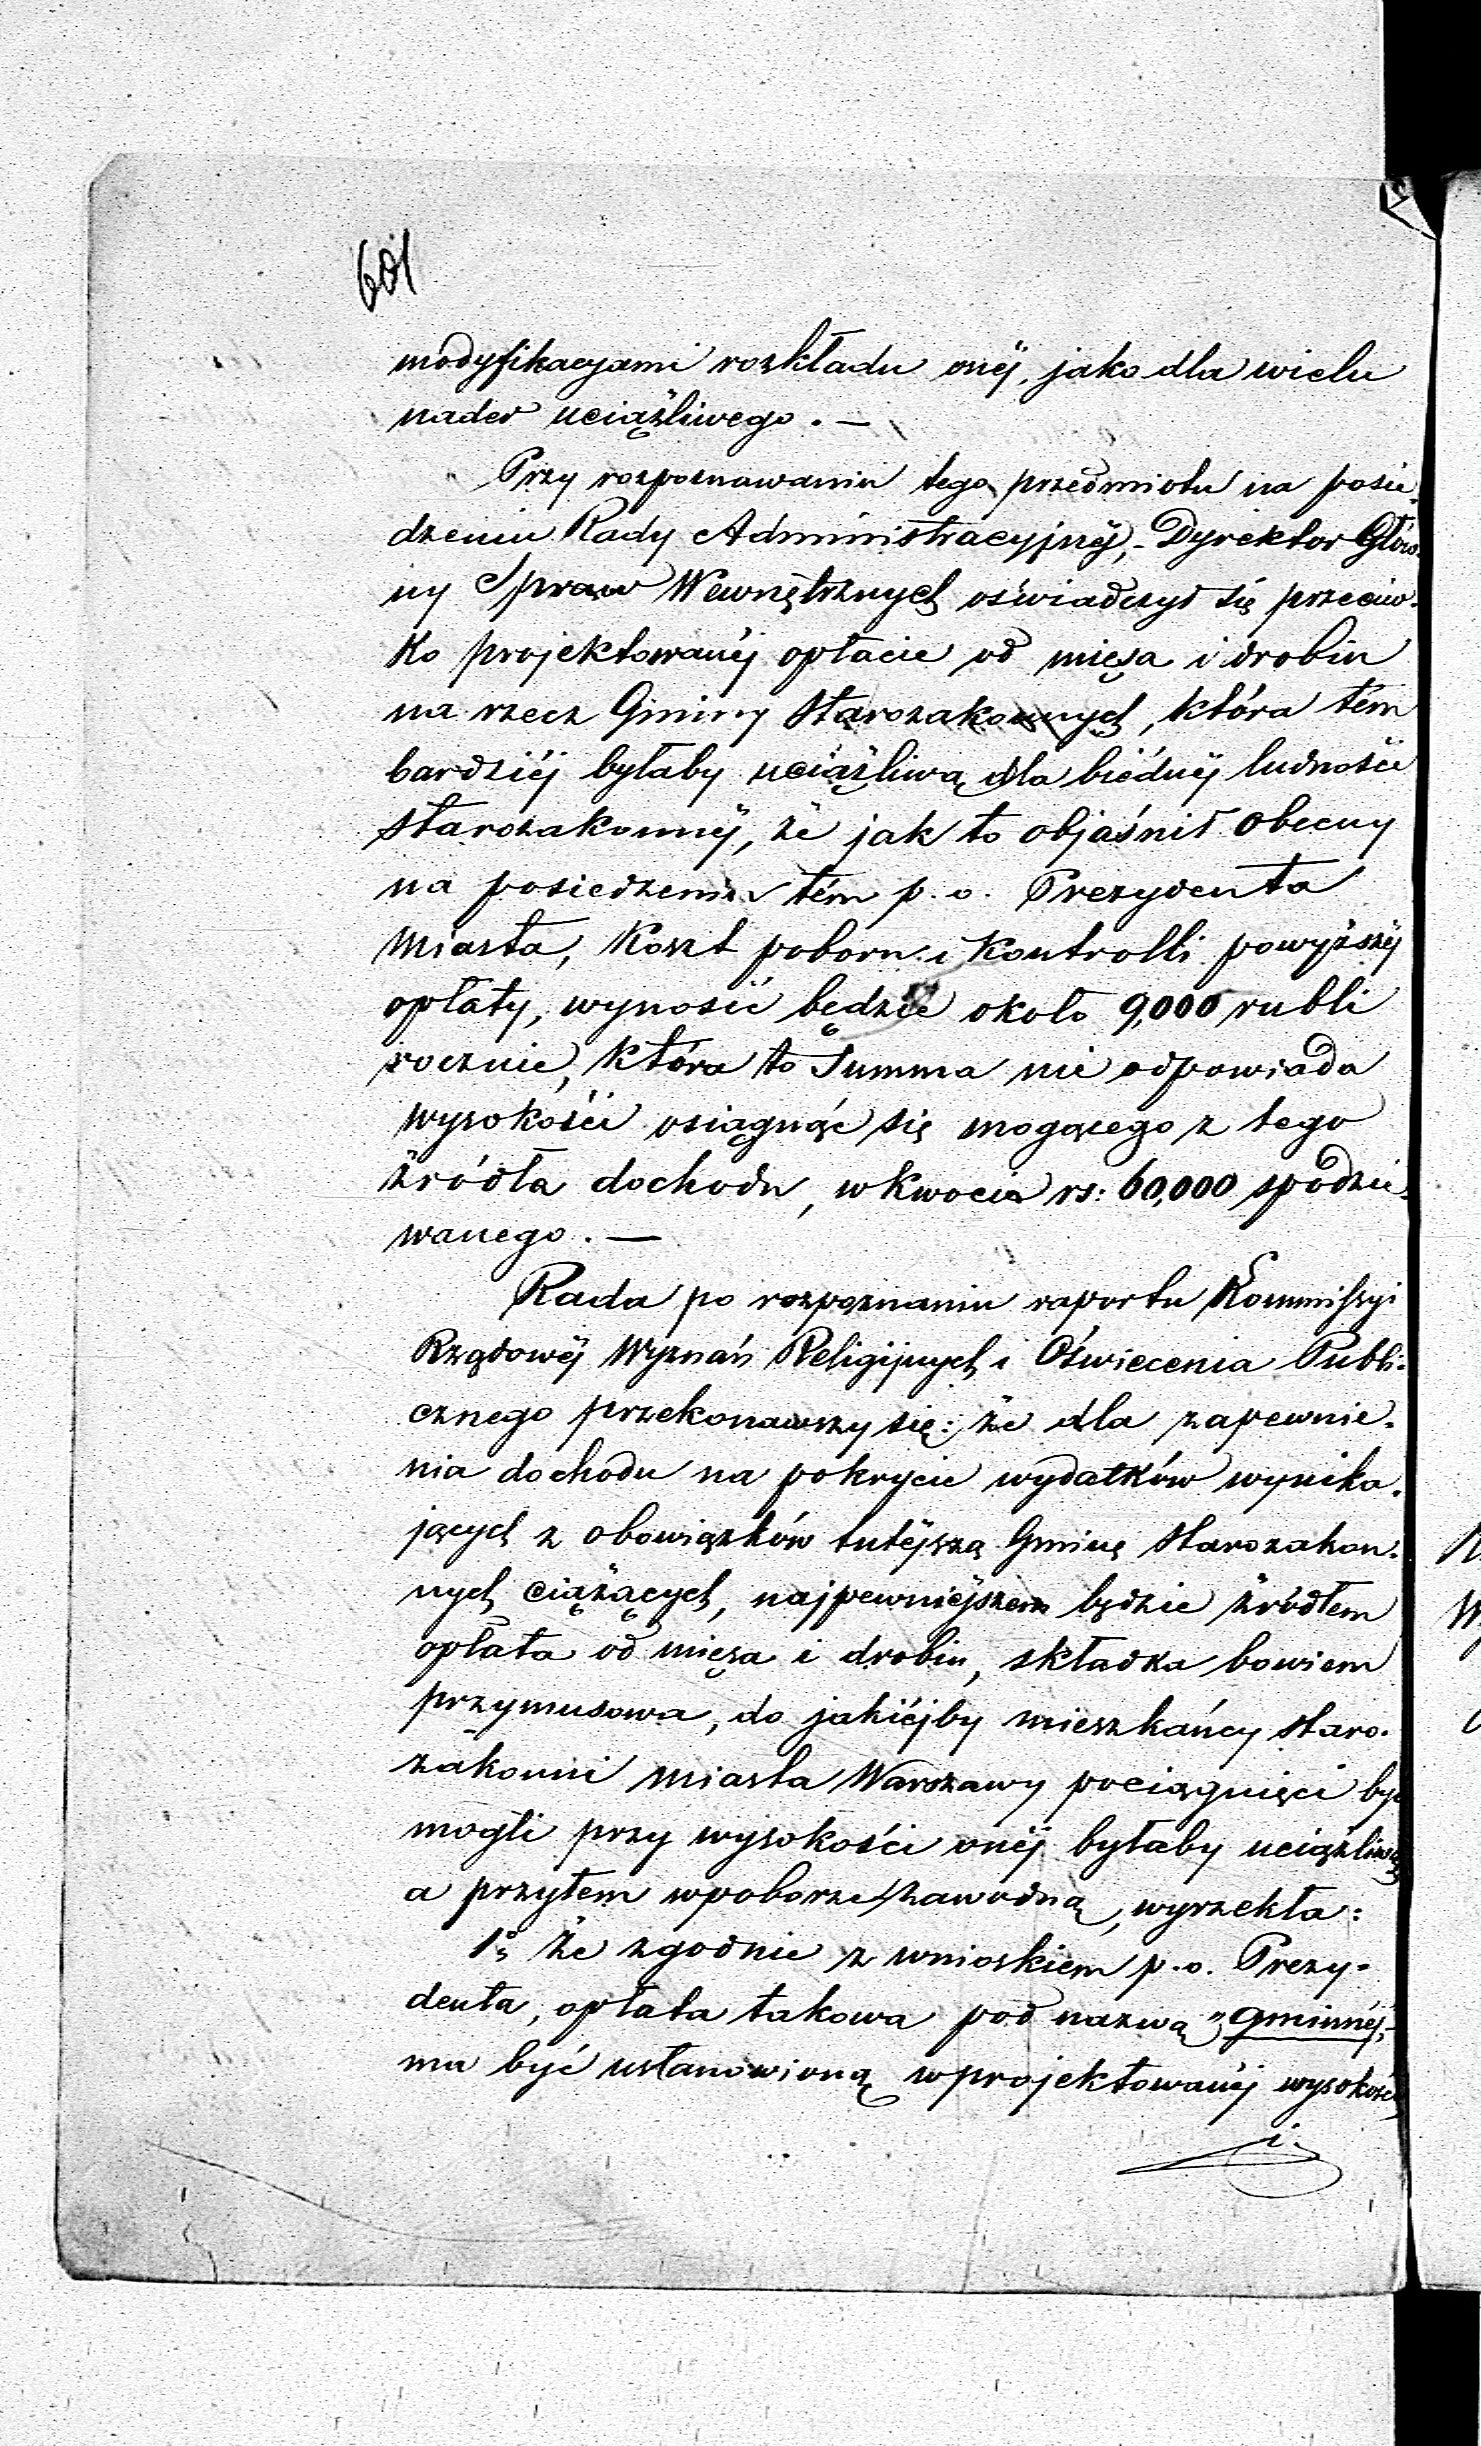 601
modyfikacyami rozkładu onéj, jako dla wielu
nader uciążliwego. —
Przy rozpoznawaniu tego przedmiotu na posie-
dzeniu Rady Administracyjnéj, - Dyrektor Głów-
ny Spraw Wewnętrznych oświadczył się przeciw-
ko projektowanéj opłacie od mięsa i drobiu
na rzecz Gminy Starozakonnych, która tém
bardziéj byłaby uciążliwą dla biédnéj ludności
starozakonnéj, że jak to objaśnił obecny
na posiedzeniu tém p. o. Prezydenta
miasta, koszt poboru i kontrolli powyższéj
opłaty, wynosić będzie około 9,000 rubli
rocznie, która to summa nie odpowiada
wysokości osiągnąć się mogącego z tego
źródła dochodu, w kwocie rs: 60,000 spodzie-
wanego. —
Rada po rozpoznaniu raportu Kommissyi
Rządowéj Wyznań Religijnych i Oświecenia Publi-
cznego przekonawszy się: że dla zapewnie-
nia dochodu na pokrycie wydatków wynika-
jących z obowiązków tutéjszą Gminę Starozakon-
nych ciążących, najpewniéjszem będzie źródłem
opłata od mięsa i drobiu, składka bowiem
przymusowa, do jakiéjby mieszkańcy staro-
zakonni miasta Warszawy pociągnięci być
mogli przy wysokości onéj byłaby uciążliwą
a przytem w poborze zawodną, wyrzekła:
1º że zgodnie z wnioskiem p. o. Prezy-
denta, opłata takowa pod nazwą „gminnéj,"
ma być ustanowioną w projektowanéj wysokości
i